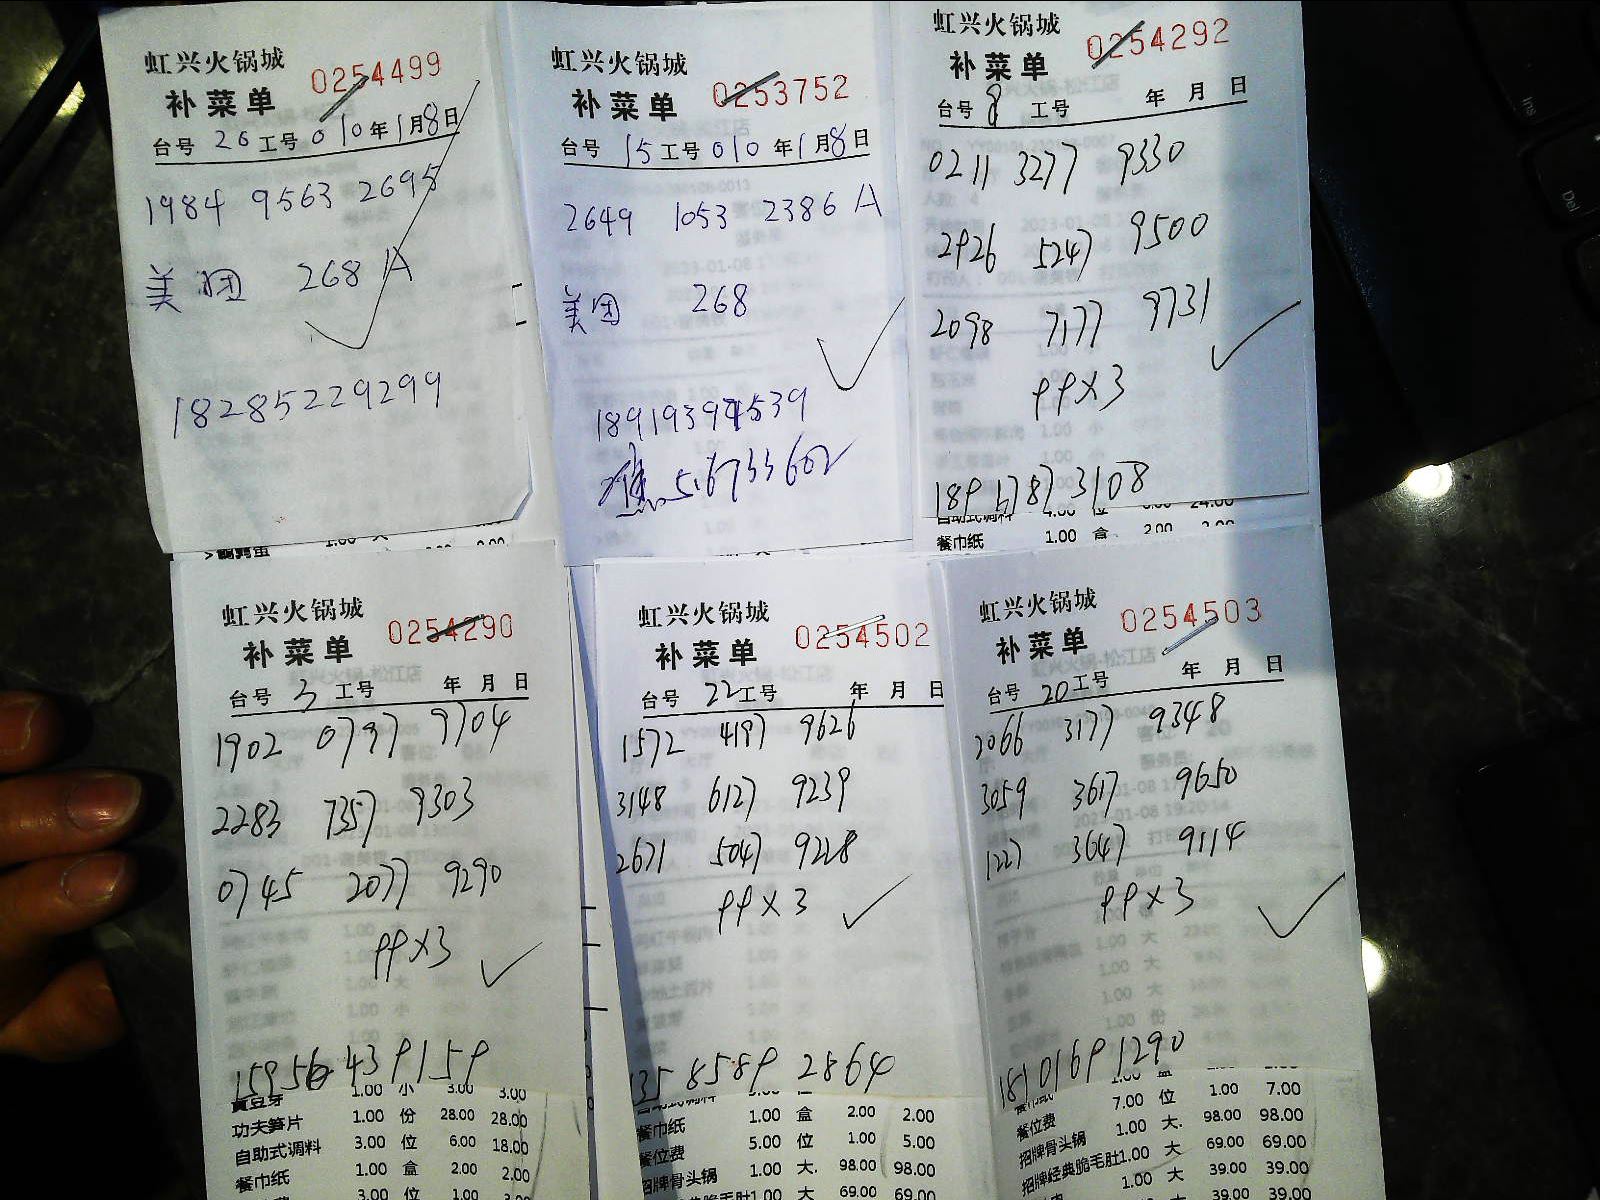 虹兴火锅城
补菜单 0254499
台号 26 工号 010 年 1 月 8 日
1984 9563 2695
美团 268 A
18285229299
虹兴火锅城
补菜单 0253752
台号 15 工号 010 年 1 月 8 日
2649 1053 2386 A
美团 268
56733602
虹兴火锅城
补菜单 0254292
台号 8 工号 年 月 日
0211 3277 9330
2926 5247 9500
2098 7177 9731
PPX3
189 1787 3108
自助式调料
餐巾纸 1.00 盒 2.00
虹兴火锅城
补菜单 0254290
台号 3 工号 年 月 日
1902 0797 9704
2283 7357 9303
0745 2077 9290
PPX3
159 56 439159
黄豆芽 1.00 小 3.00 3.00
功夫笋片 1.00 份 28.00 28.00
自助式调料 3.00 位 6.00 18.00
餐巾纸 1.00 盒 2.00 2.00
3.00 位 1.00
虹兴火锅城
补菜单 0254502
台号 22 工号 年 月 日
1572 4197 9626
3148 6127 9239
2671 5047 9228
PPX3
135 8589 2864
自助式调料
餐巾纸 1.00 盒 2.00 2.00
餐位费 5.00 位 1.00 5.00
招牌骨头锅 1.00 大. 98.00 98.00
1.00 大 69.00 69.00
虹兴火锅城
补菜单 0254503
台号 20 工号 年 月 日
2066 3177 9348
3059 3617 9650
1227 3647 9114
PPX3
181 0169 1290
餐位费 7.00 位 1.00 7.00
招牌骨头锅 1.00 大. 98.00 98.00
招牌经典脆毛肚 1.00 大 69.00 69.00
1.00 大 39.00 39.00
39.00 39.00